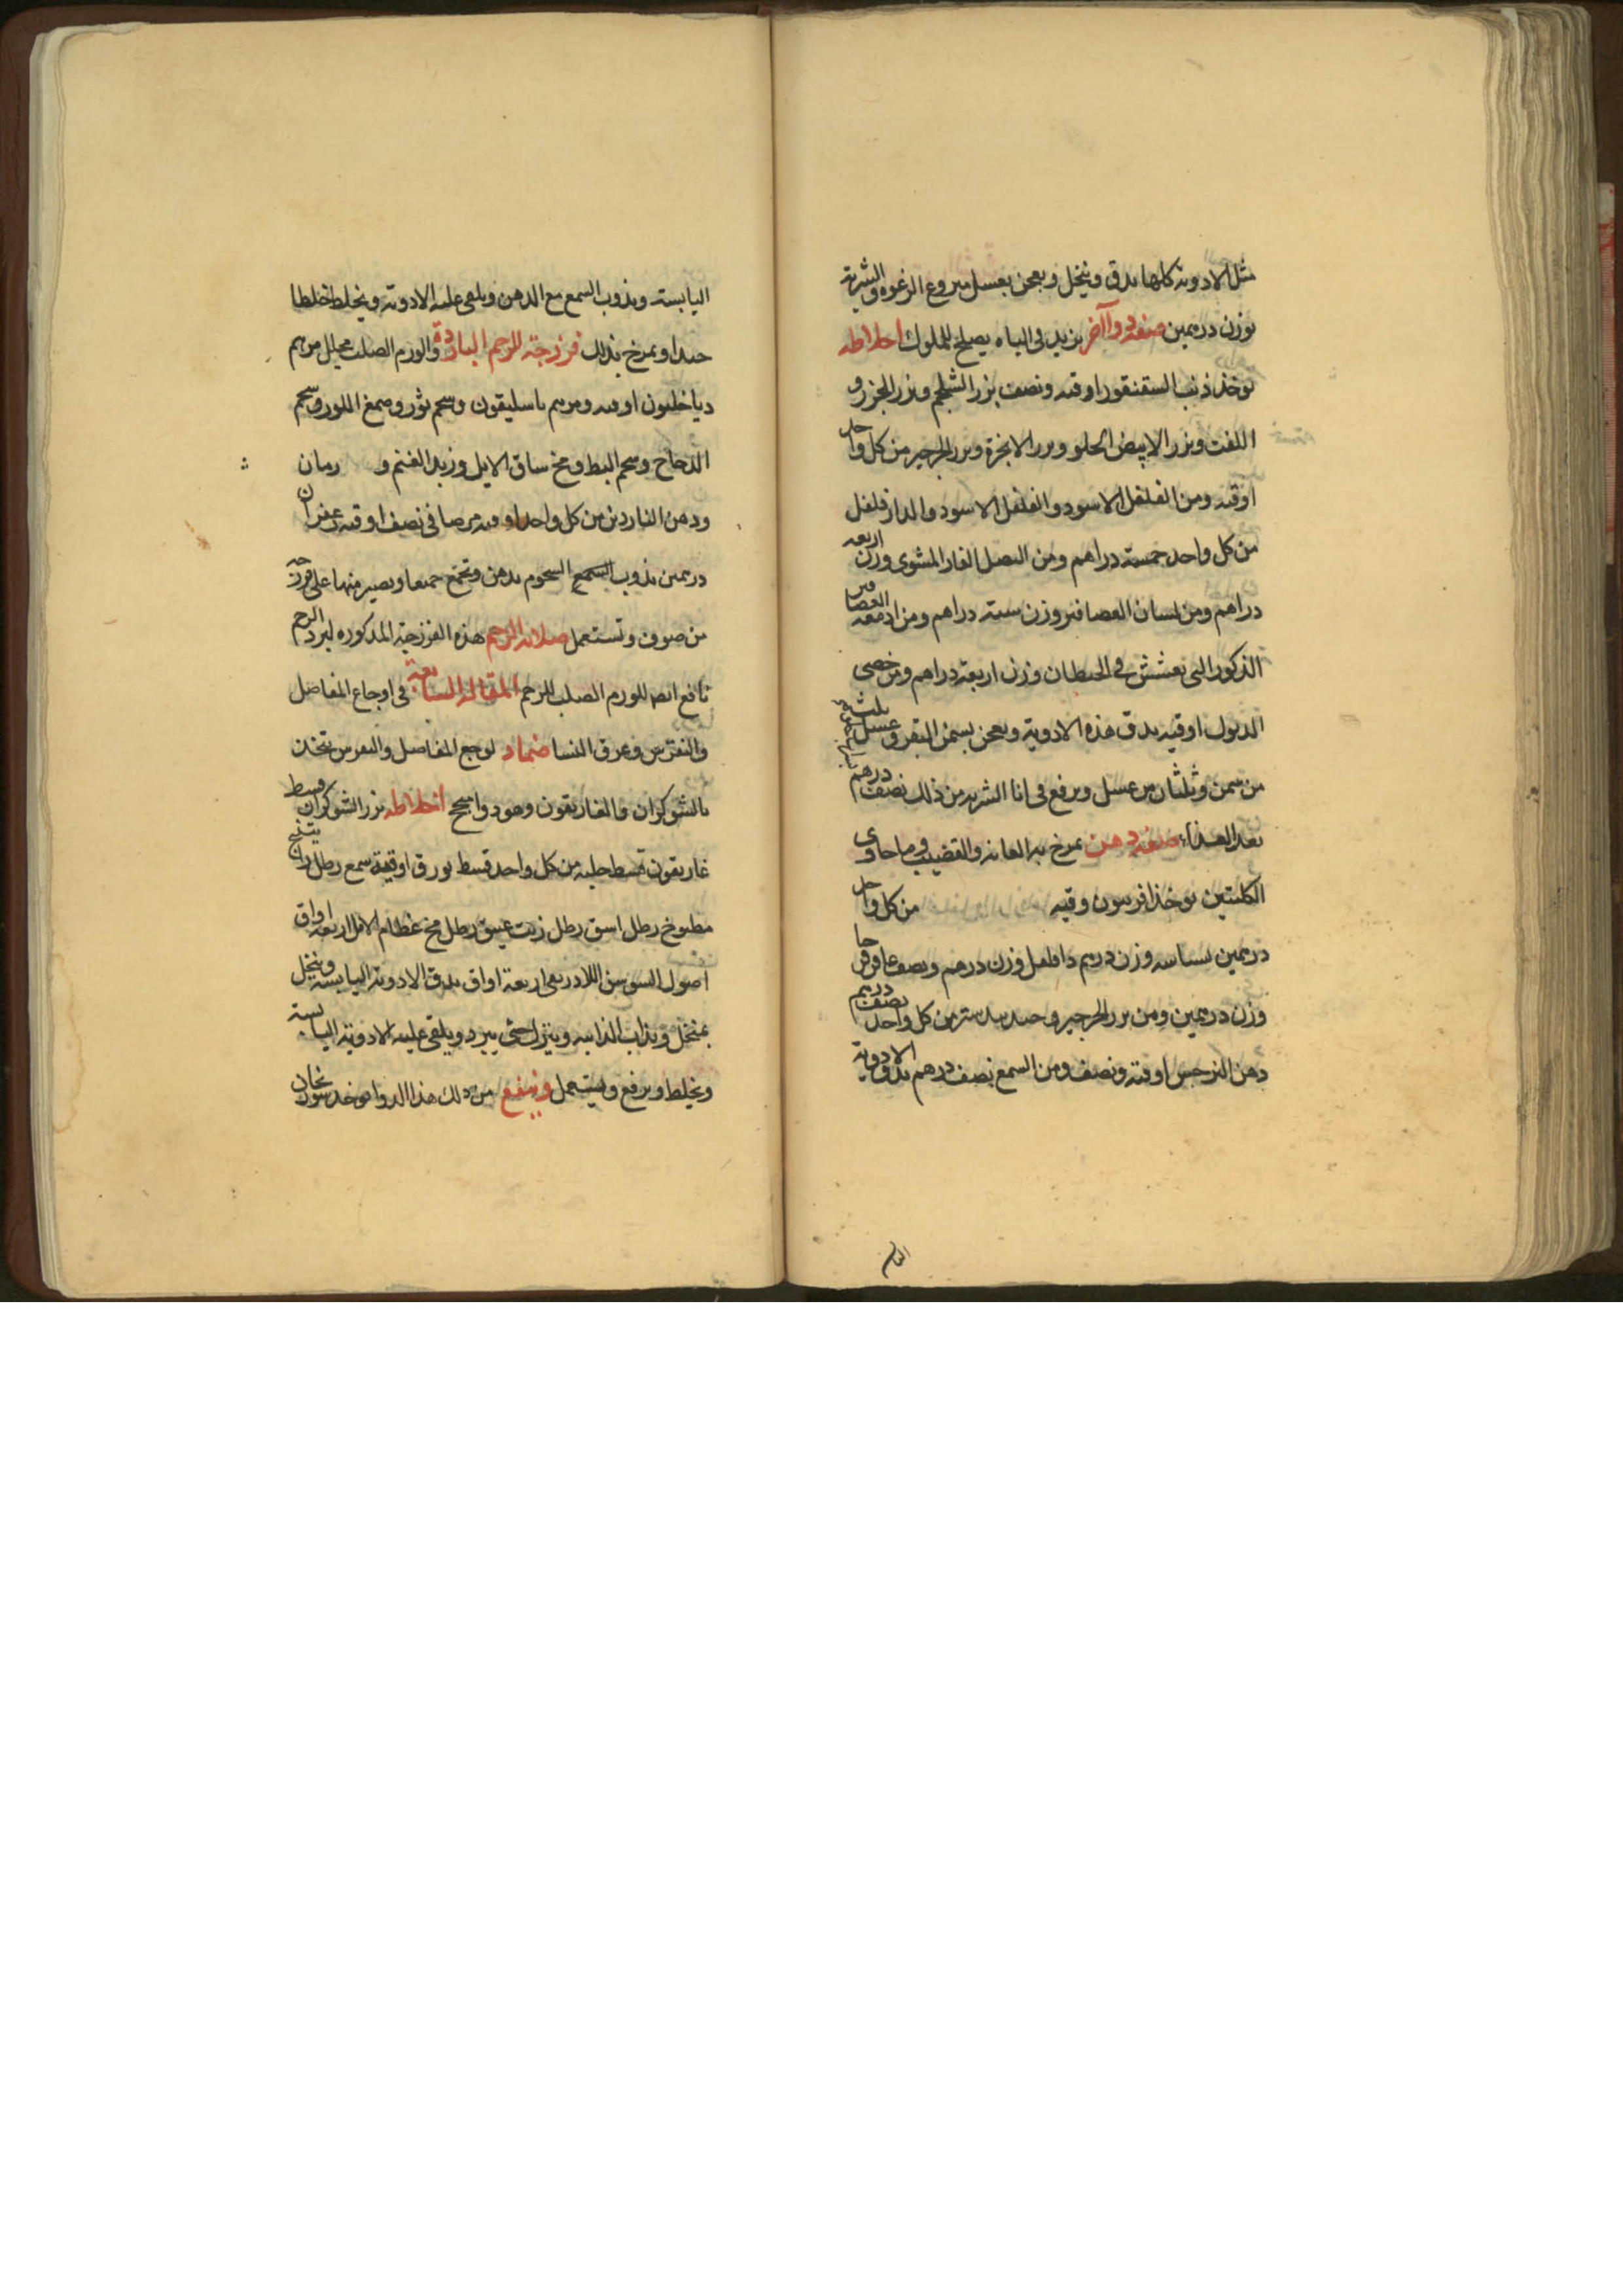 مثل الادوية كلها يدق وينخل ويعجن بعسل منزوع الرغوة والشربة
بوزن درهمين صفة دوا آخر يزيد في الباه يصلح للملوك اخلاطه
يوخذ ذنب السقنقور اوقيه ونصف بزر الشلجم وبزر الجزر و
اللفت وبزر الابيض الحلو وبزر الانجرة وبزر الجرجير من كل واحد
اوقيه ومن الفلفل الاسود والفلفل الاسود والدارفلفل
من كل واحد خمسة دراهم ومن البصل الفار المشوى وزن اربعه
دراهم ومن لسان العصافير وزن ستة دراهم ومن ادمغه العصافير
الذكور التى تعشش في الحيطان وزن اربعة دراهم ومن خصى
الديوك اوقيه يدق هذه الادوية ويعجن بسمن البقر وعسل ثلث
من سمن وثلثان من عسل ويرفع في انا الشربه من ذلك نصف درهم
بعد الغذاء صفة دهن يمرخ به العانه والقضيب وما حاذى
الكليتين يوخذ افربيون وقيه من كل واحد
درهمين بسباسه وزن درهم دارفلفل وزن درهم ونصف عاقرقرحا
وزن درهمين ومن بزر الجرجير وجندبيدستر من كل واحد نصف درهم
دهن النرجس اوقيه ونصف ومن الشمع نصف درهم يدق الادوية
اليابسة ويذوب الشمع مع الدهن ويلقى عليه الادوية ويخلط خلطا
جيدا ويمرخ بذلك فرزجة للرحم الباردة والورم الصلب يحلل مرهم
دياخليون اوقيه ومرهم باسليقون وشحم ثور وصمغ اللوز وشحم
الدجاج وشحم البط ومخ ساق الايل وزبد الغنم و رمان
ودهن الناردين من كل واحد اوقيه مر صافى نصف اوقيه زعفران
درهمين يذوب الشمع الشحوم بدهن وتجمع جميعا ويصير منها على فرزجه
من صوف وتستعمل صلابه الرحم هذه الفرزجة المذكوره لبرد الرحم
نافع ايضا للورم الصلب للرحم المقالة السابعة في اوجاع المفاصل
والنقرس وعرق النسا ضماد لوجع المفاصل والنقرس يتخذ
بالشوكران والغاريقون وهو دوا منجح اخلاطه بزر الشوكران قسط
غاريقون قسط حلبه من كل واحد قسط بورق اوقية شمع رطل راتينج
مطبوخ رطل اسق رطل زيت عتيق رطل مخ عظام الايل اربعه اواق
اصول السوسن اربعة اواق يدق الادوية اليابسه وينخل
بمنخل ويذاب الذايبه وينزل حتى يبرد ويلقى عليه الادوية اليابسة
ويخلط ويرفع ويستعمل وينفع من ذلك هذا الدوا يوخذ سورنجان